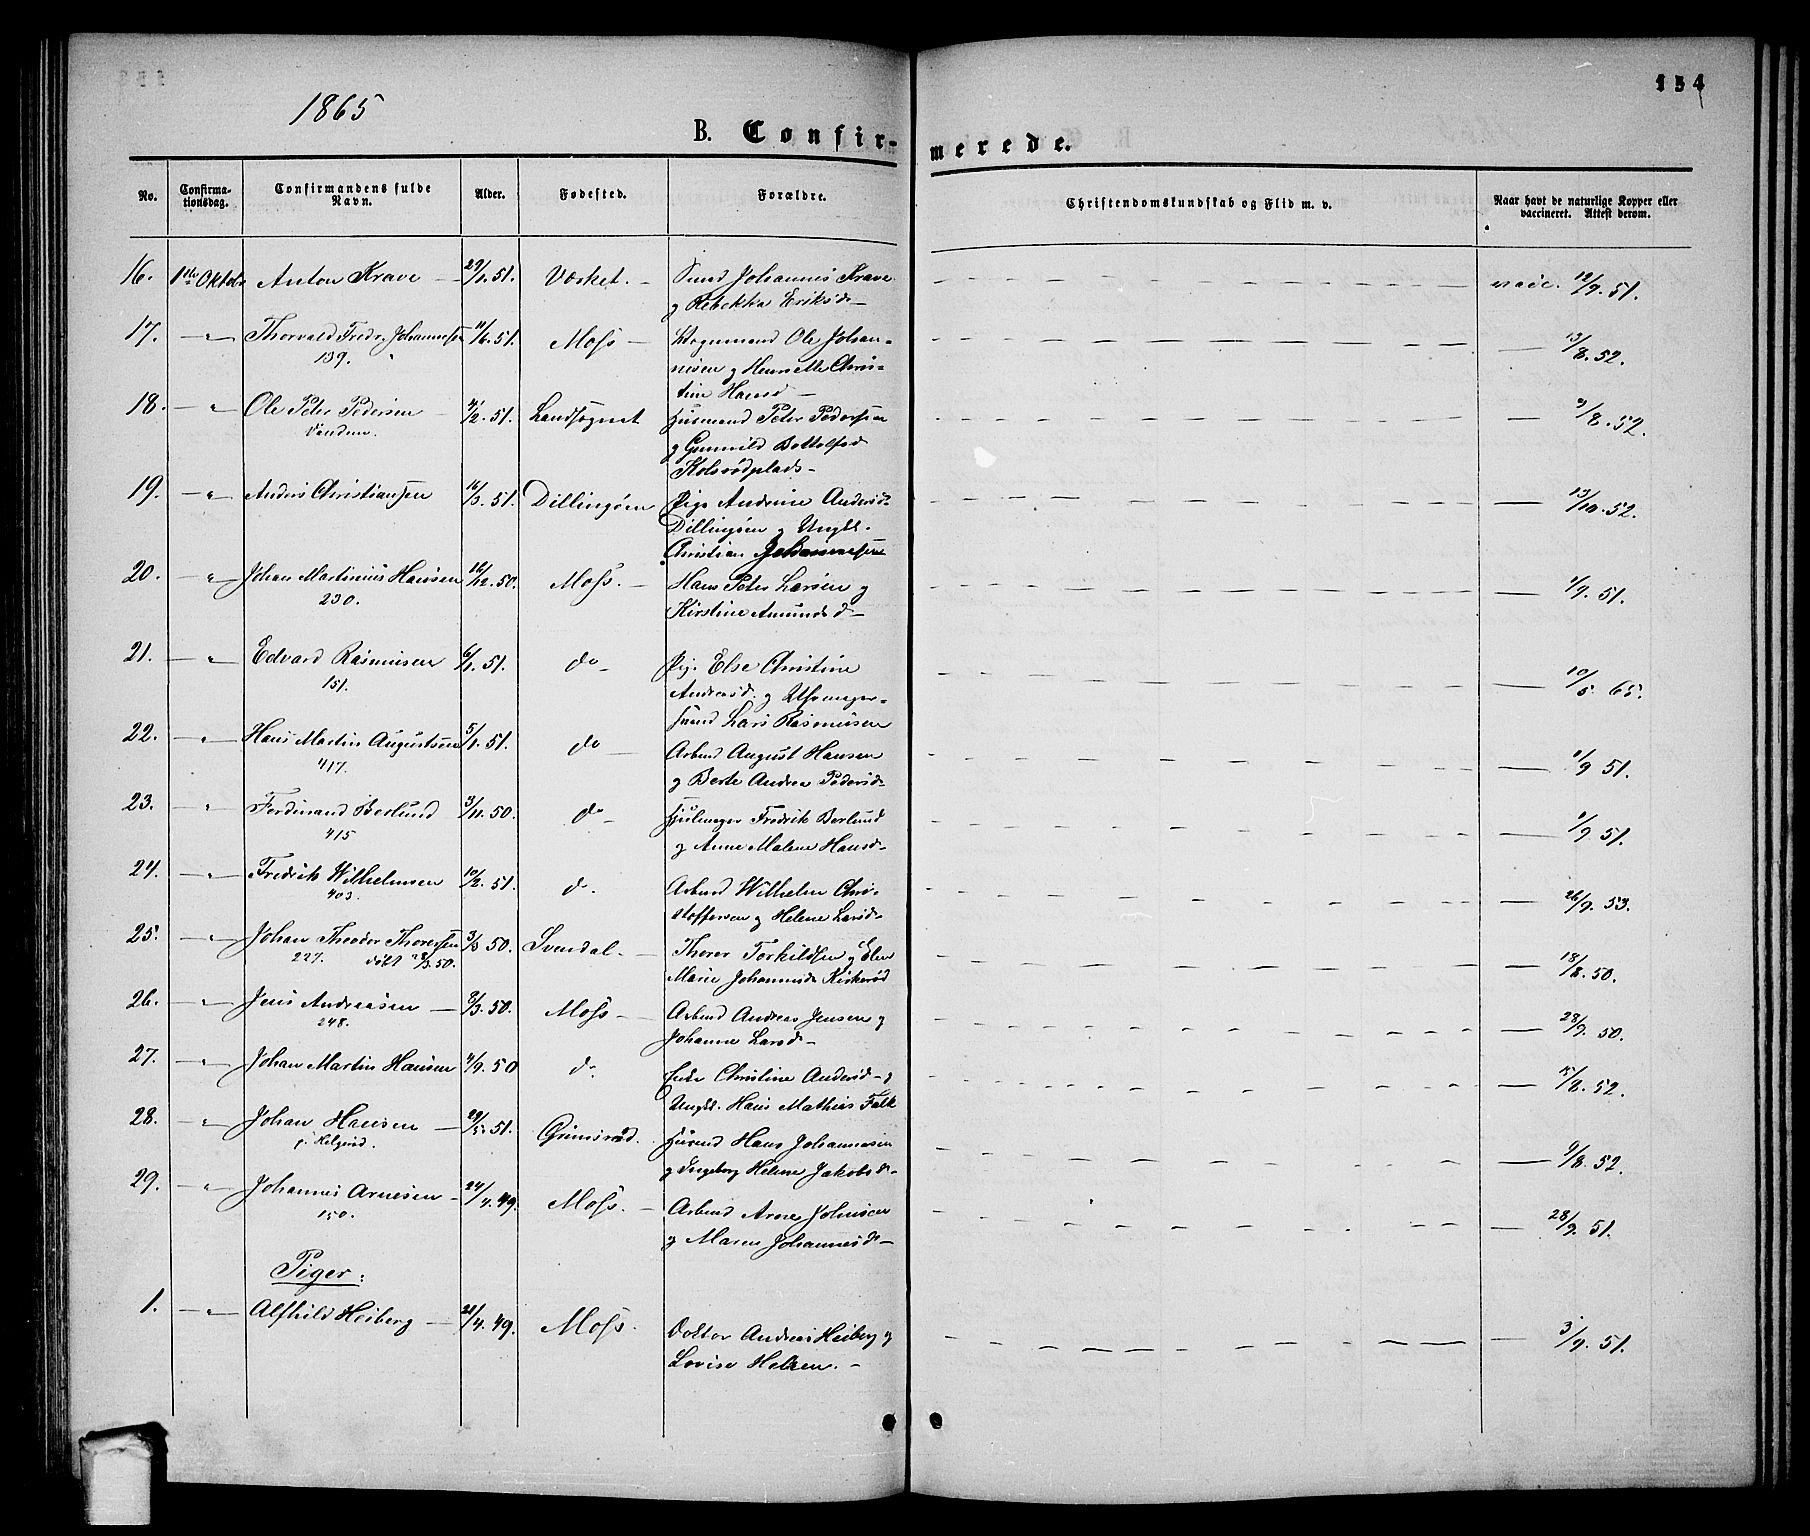 154
1865
B. Confir-
merede.
No.
Confirma-
tionsdag.
Confirmandens fulde
Navn.
Alder.
Fødested.
Forældre.
Christendomskundskab og Flid m. v.
Naar havt de naturlige Kopper eller
vaccineret. Attest derom.
16. 1ste Oktob. Anton Krave 29/1. 51. Værket. Smed Johannes Krave vacc. 19/9. 51.
og Rebekka Eriksd.
17. — " — Thorvald Fredr. Johannesen 11/6. 51. Moss Ole Johan- 13/8. 52.
139.
nesen og Henriette Chris-
tine Hansd
18. — " Ole Peter Pedersen 4/2. 51. Landsognet Husmand Peter Pedersen 9/8. 52.
Vanden.
og Gunnild Bottolfsd
Kolsrødplads
19. — " Anders Christiansen 16/3. 51. Dillingøen Pige Andrine Andersd 13/10. 52.
Dillingøen og Ungkl.
Christian Johannesen
20. — " Johan Martinius Hansen 16/12. 50. Moss. Hans Peter Larsen og 1/9. 51.
230.
Kirstine Amundsd
21. — " Edvard Rasmusen 6/1. 51. do Pig. Else Christine 10/5 65.
151.
Andreasd. og
Lars Rasmusen
22. — " Hans Martin Augustsen 5/1. 51. do Arbmd August Hansen 1/9 51.
417.
og Berte Andrea Pedersd
23. " Ferdinand Berlund 3/11. 50. do Hjulmager Fredrik Berlund 1/9 51.
415
og Anne Malene Hansd
24. — " Fredrik Wilhelmsen 10/2. 51. d. Arbmd Wilhelm Chri- 26/9. 53.
403.
stoffersen og Helene Larsd
25. — " Johan Theodor Thoresen 3/3 50. Svendal Thorer Torkildsen og Elen 18/8. 50.
227. døbt 28/3. 50.
Marie Johannesd Kirkerød
26. — " Jens Andreasen 8/3. 50. Moss Arbmd Andreas Jensen og 28/9. 50.
248.
Johanne Larsd
27. — " Johan Martin Hansen 4/9. 50 d. Enke Christine Andersd og 5/8. 52.
Ungkl. Hans Mathias Falk
28. — " Johan Hansen 29/5. 51. Grimsrød. Husmd Hans Johannesen 9/8. 52.
p. Helgerød.
og Ingeborg Helene Jakobsd
29. — " Johannes Arnesen 24/4. 49. Moss. Arbmd Arne Johnsen 28/9. 51.
150.
og Maren Johannesd
Piger:
1. — " — Alfhild Heiberg 21/4. 49. Moss. Doktor Andreas Heiberg og 3/9. 51.
Lovise Heltzen.